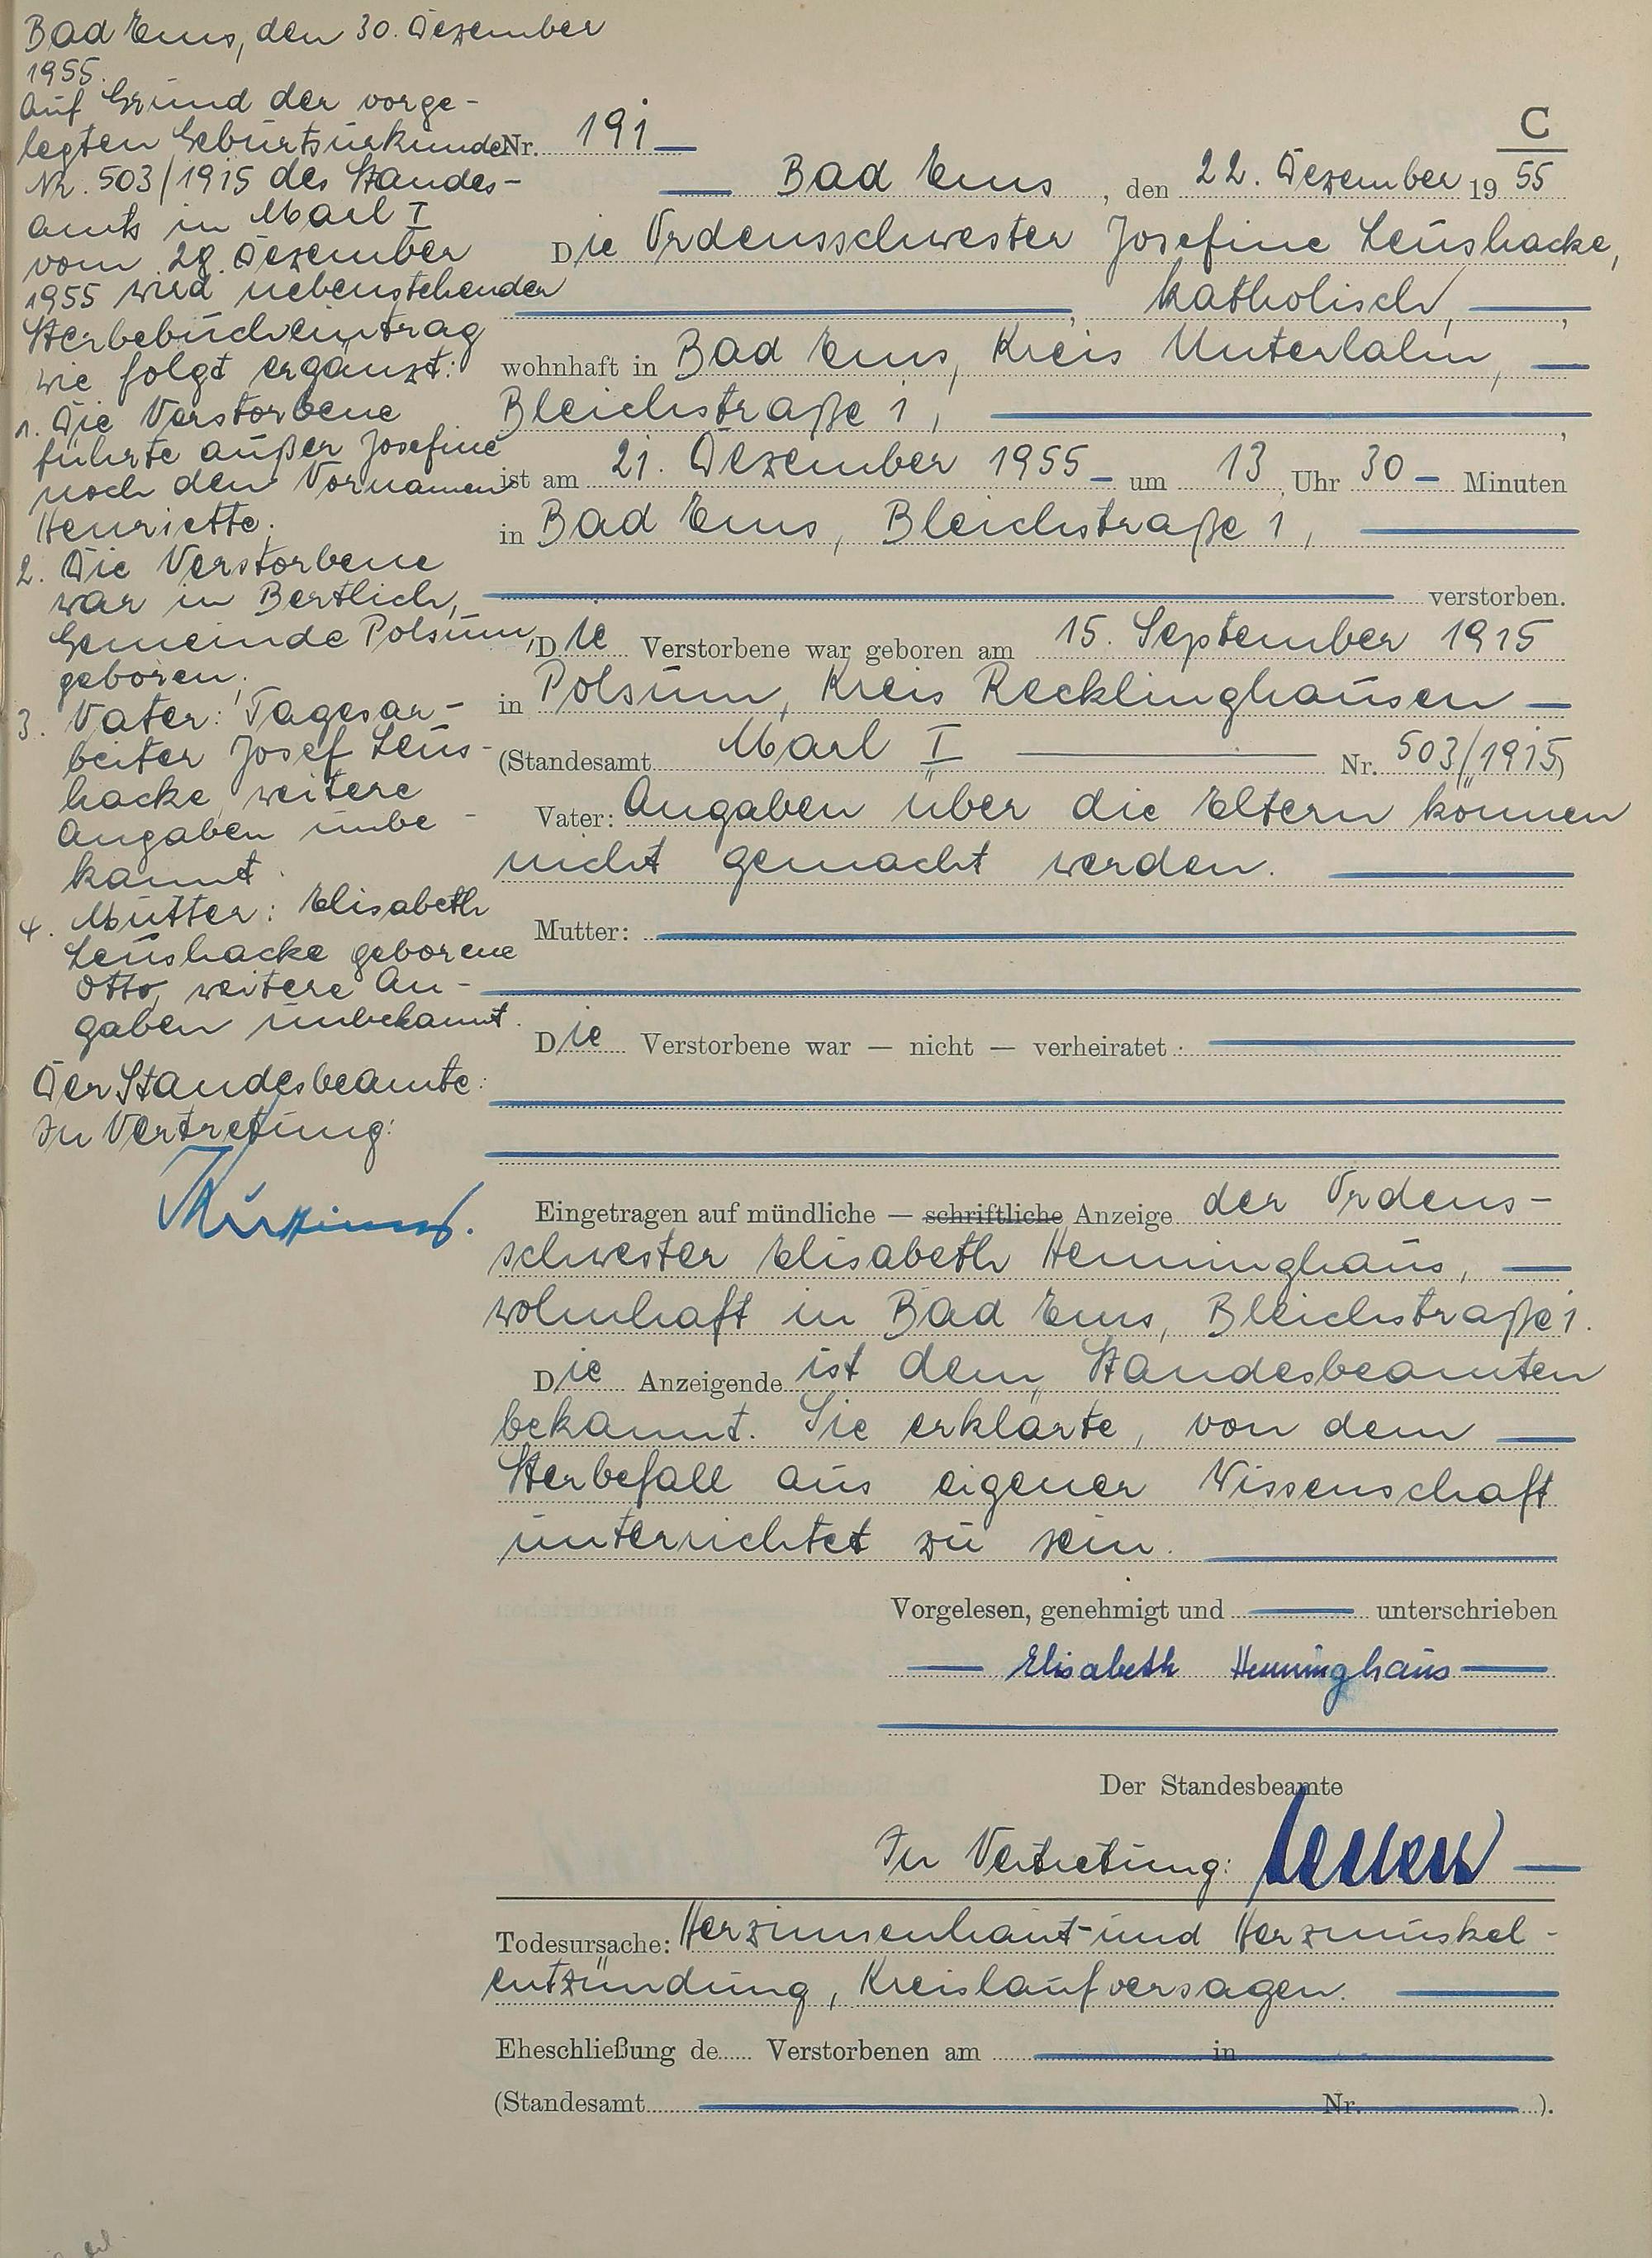 Bad Ems, den 30. Dezember
1955.
Auf Grund der vorge-
legten Geburtsurkunde
Nr. 503/1915 des Standes-
amts in Marl I
vom 28. Dezember
1955 wird nebenstehender
Sterbebucheintrag
wie folgt ergänzt:
1. Die Verstorbene
führte außer Josefine
noch den Vornamen
Henriette.
2. Die Verstorbene
war in Bertlich,
Gemeinde Polsum,
geboren.
3. Vater: Tagesar-
beiter Josef Leus-
hacke, weitere
Angaben unbe-
kannt.
4. Mutter: Elisabeth
Leushacke geborene
Otto, weitere An-
gaben unbekannt.
Der Standesbeamte:
In Vertretung:
C
Nr. 191
Bad Ems, den 22. Dezember 1955
Die Ordensschwester Josefine Leushacke,
, katholisch, ,
wohnhaft in Bad Ems, Kreis Unterlahn,
Bleichstraße 1, ,
ist am 21. Dezember 1955 um 13 Uhr 30 Minuten
in Bad Ems, Bleichstraße 1,
verstorben.
Die Verstorbene war geboren am 15. September 1915
in Polsum, Kreis Recklinghausen
(Standesamt Marl I Nr. 503/1915)
Vater: Angaben über die Eltern können
nicht gemacht werden.
Mutter:
Die Verstorbene war — nicht — verheiratet
Eingetragen auf mündliche — schriftliche Anzeige der Ordens-
schwester Elisabeth Henninghaus,
wohnhaft in Bad Ems, Bleichstraße 1.
Die Anzeigende ist dem Standesbeamten
bekannt. Sie erklärte, von dem
Sterbefall aus eigener Wissenschaft
unterrichtet zu sein.
Vorgelesen, genehmigt und unterschrieben
Elisabeth Henninghaus
Der Standesbeamte
In Vertretung:
Todesursache: Herzinnenhaut- und Herzmuskel-
entzündung, Kreislaufversagen.
Eheschließung de Verstorbenen am in
(Standesamt Nr. ).